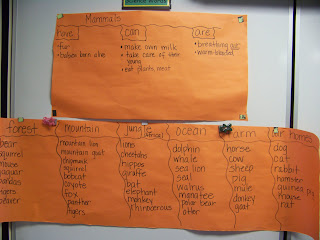 Mammals
have
can
are
• fur
• babies born alive
• make own milk
• take care of their
young
• eat plants, meat
• breathing air
• warm-blooded
forest
mountain
jungle
ocean
farm
our homes
bear
squirrel
mouse
jaguar
pandas
beaver
mountain lion
mountain goat
chipmunk
squirrel
bobcat
coyote
fox
panther
tigers
lions
cheetahs
hippos
giraffe
bat
elephant
monkey
rhinocerous
dolphin
whale
sea lion
seal
walrus
manatee
polar bear
otter
horse
cow
sheep
pig
mule
donkey
goat
dog
cat
rabbit
hamster
guinea pig
mouse
rat